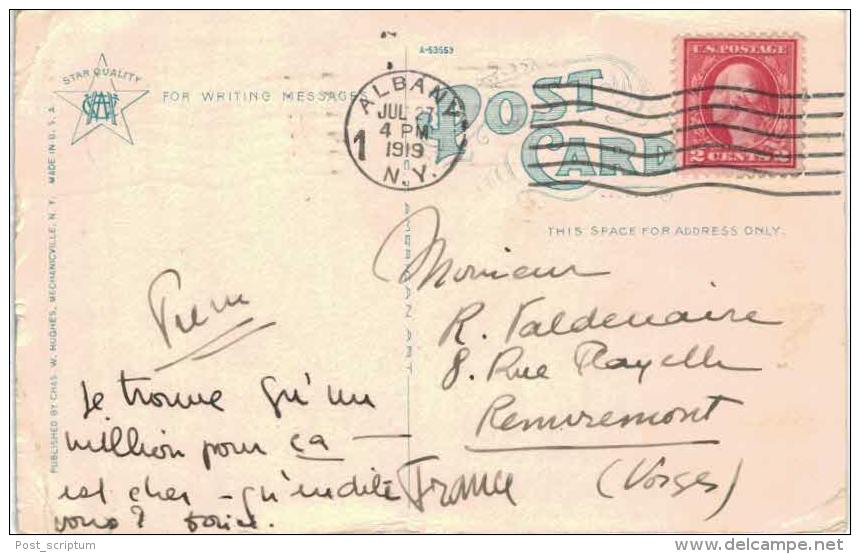 A-53553
STAR QUALITY
CWH
FOR WRITING MESSAGES
ALBANY
JUL 27
4 PM
1919
N.Y.
1
POST
CARD
U.S. POSTAGE
2 CENTS 2
THIS SPACE FOR ADDRESS ONLY.
AMERICAN ART
PUBLISHED BY CHAS. W. HUGHES, MECHANICVILLE, N. Y. MADE IN U. S. A.
Monsieur
R. Valdenaire
8. Rue
Remiremont
(Vosges)
France
Je trouve qu'un
million pour ça —
est cher - qu'en dite
vous?
Post_scriptum
www.delcampe.net